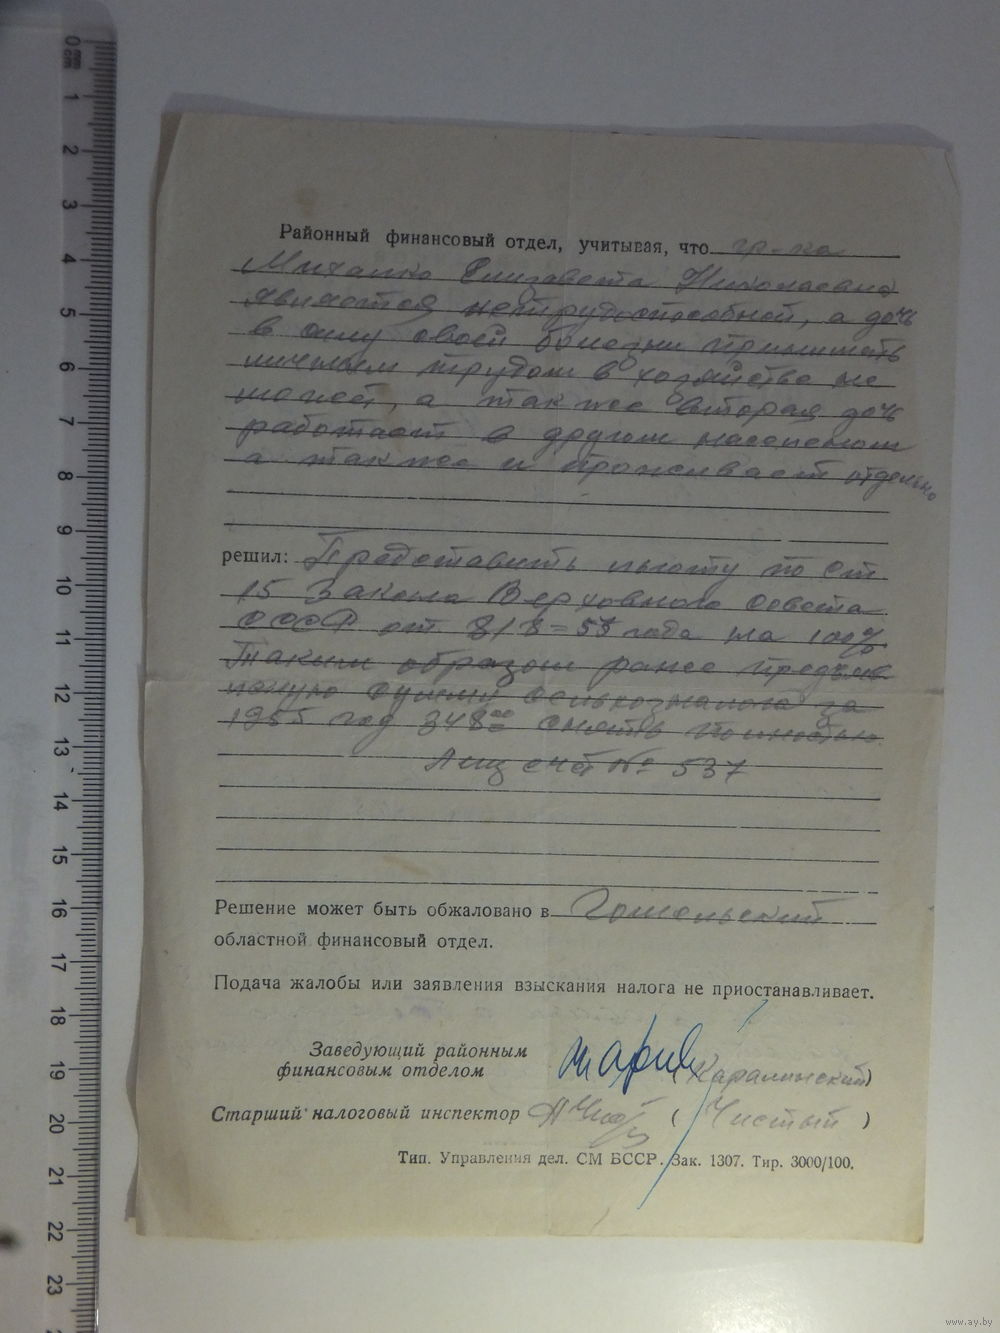 Районный финансовый отдел, учитывая, что гр-ка
Михалко Елизавета Николаевна
является нетрудоспособной, а дочь
в силу своей болезни принимать
личным трудом в хозяйстве не
может, а так же вторая дочь
работает в другом населенном
а так же и проживает отдельно
решил: Предоставить льготу по ст.
15 Закона Верховного Совета
СССР от 8/8=53 года на 100%
Таким образом ранее предъяв
ленную сумму сельхозналога за
1955 год 348 снять полностью
Лиц счет № 537
Решение может быть обжаловано в Гомельский
областной финансовый отдел.
Подача жалобы или заявления взыскания налога не приостанавливает.
Заведующий районным
финансовым отделом (Каралинский)
Старший налоговый инспектор ( Чистый )
Тип. Управления дел. СМ БССР. Зак. 1307. Тир. 3000/100.
0 cm
1
2
3
4
5
6
7
8
9
10
11
12
13
14
15
16
17
18
19
20
21
22
23
www.ay.by